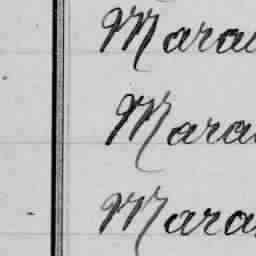 Mara
Mara
Mara